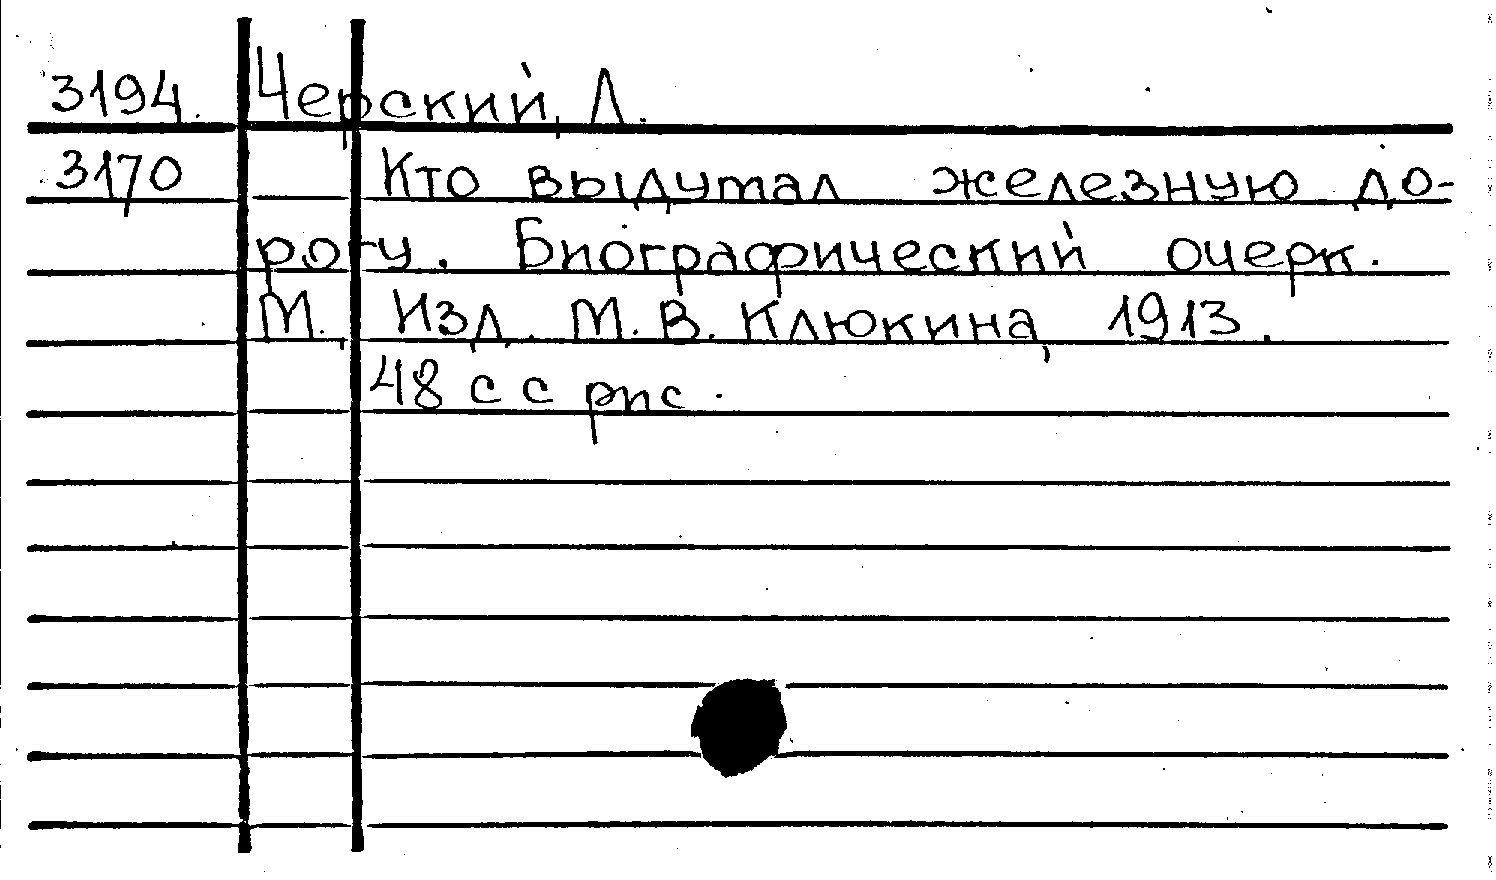 3194. Черский, Л.
3170 Кто выдумал железную до-
рогу. Биографический очерк.
М., Изд. М.В. Клюкина, 1913.
48 с с рис.